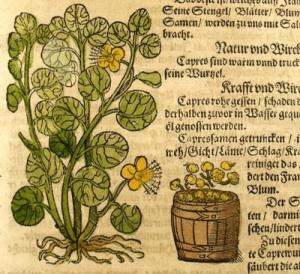 Seine Stengel/ Blätter/ Blum
Samen/ werden zu uns mit Sal
bracht.
Natur vnd Wirck
Capres sind warm vnnd truck
seine Wurzel.
Krafft vnd Wir
Capres rohe gessen/ schaden
derhalben zuvor in Wasser gequ
öl genossen werden.
Capressamen getruncken/ i
weh/ Gicht/ Läme/ Schlag/ Kra
reiniget das
dert den Fra
Blum.
Der S
ten/ darmi
schen/ lindert
Zu diesen
te Capreswur
säubert die al